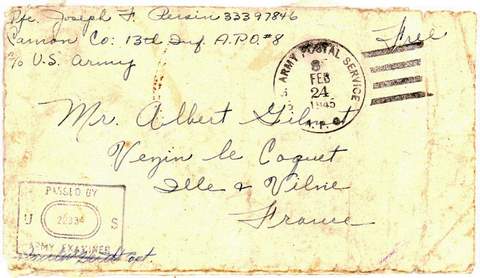 Pfc. Joseph F. Persin 33397846
Cannon Co: 13th Inf. A.P.O. #8
c/o U.S. Army
Free
ARMY POSTAL SERVICE
8
FEB
24
1945
A.P.O.
Mr. Albert Gilnot
Vezin le Coquet
Ille & Vilne
France
PASSED BY
U S
ARMY EXAMINER